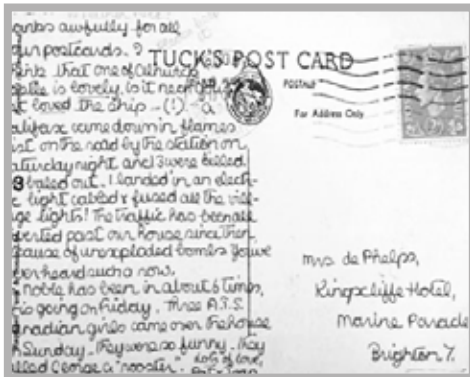 anks awfully for all
postcards. ?
that one of
is lovely. is it near
loved the ship - (!). a
alifax came down in flames
st on the road by the station on
aturday night and 3 were killed.
3 baled out. 1 landed in an elect-
light cables & fused all the vill-
ge lights! The traffic has been all
erted past our house since then,
cause of unexploded bombs You've
heard such a now.
noble has been in about 6 times,
is going on Friday. Three A.T.S.
nadian girls came over the house
n Sunday. They were so funny. They
lled George a "rooster". lots of love,
TUCK'S POST CARD
POSTAGE
For Address Only
Mrs de Phelps,
Kingscliffe Hotel,
Marine Parade
Brighton 7.